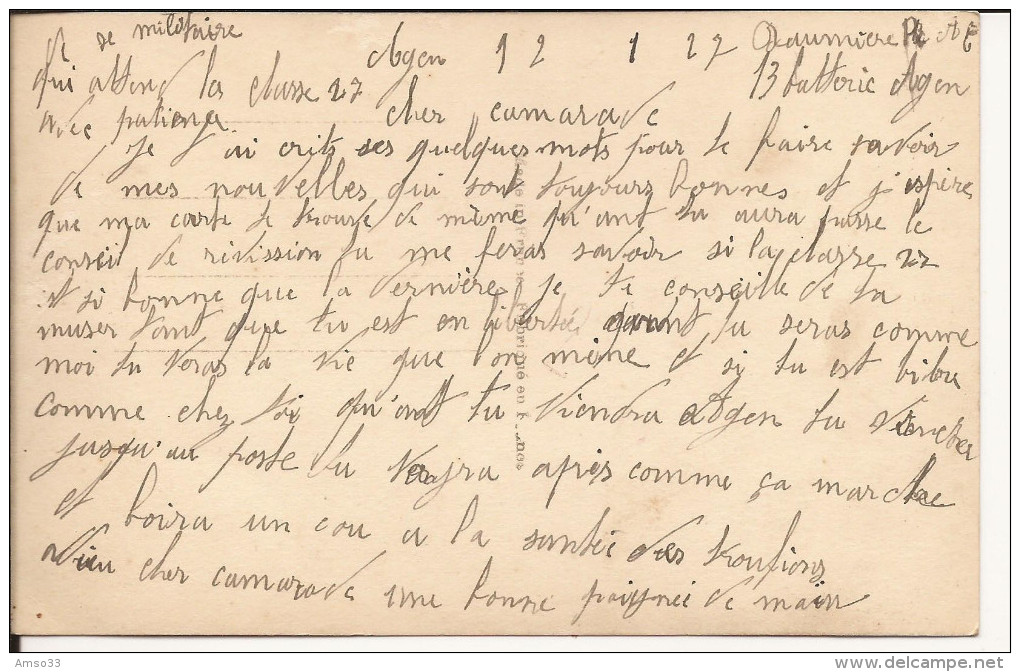 de se militaire
qui attend la classe 27
avec patience
Agen 12 1 27
Daumière
13 batterie Agen
cher camarade
Je t'ai crit ses quelques mots pour te faire savoir
de mes nouvelles qui sont toujours bonnes et j'espère
que ma carte te trouve de même qu'ant tu aura passe le
conseil de révission tu me feras savoir si la classe 27
est si bonne que la dernière je te conseille de ta
muser tant que tu est en liberté quant tu seras comme
moi tu veras la vie que l'on mène et si tu est bibu
comme chez toi qu'ant tu viendra Agen tu
jusqu'au poste tu vera après comme ça marche
et boira un cou a la santée des troufions
Adieu cher camarade une bonne poignée de main
Amso33
www.delcampe.net